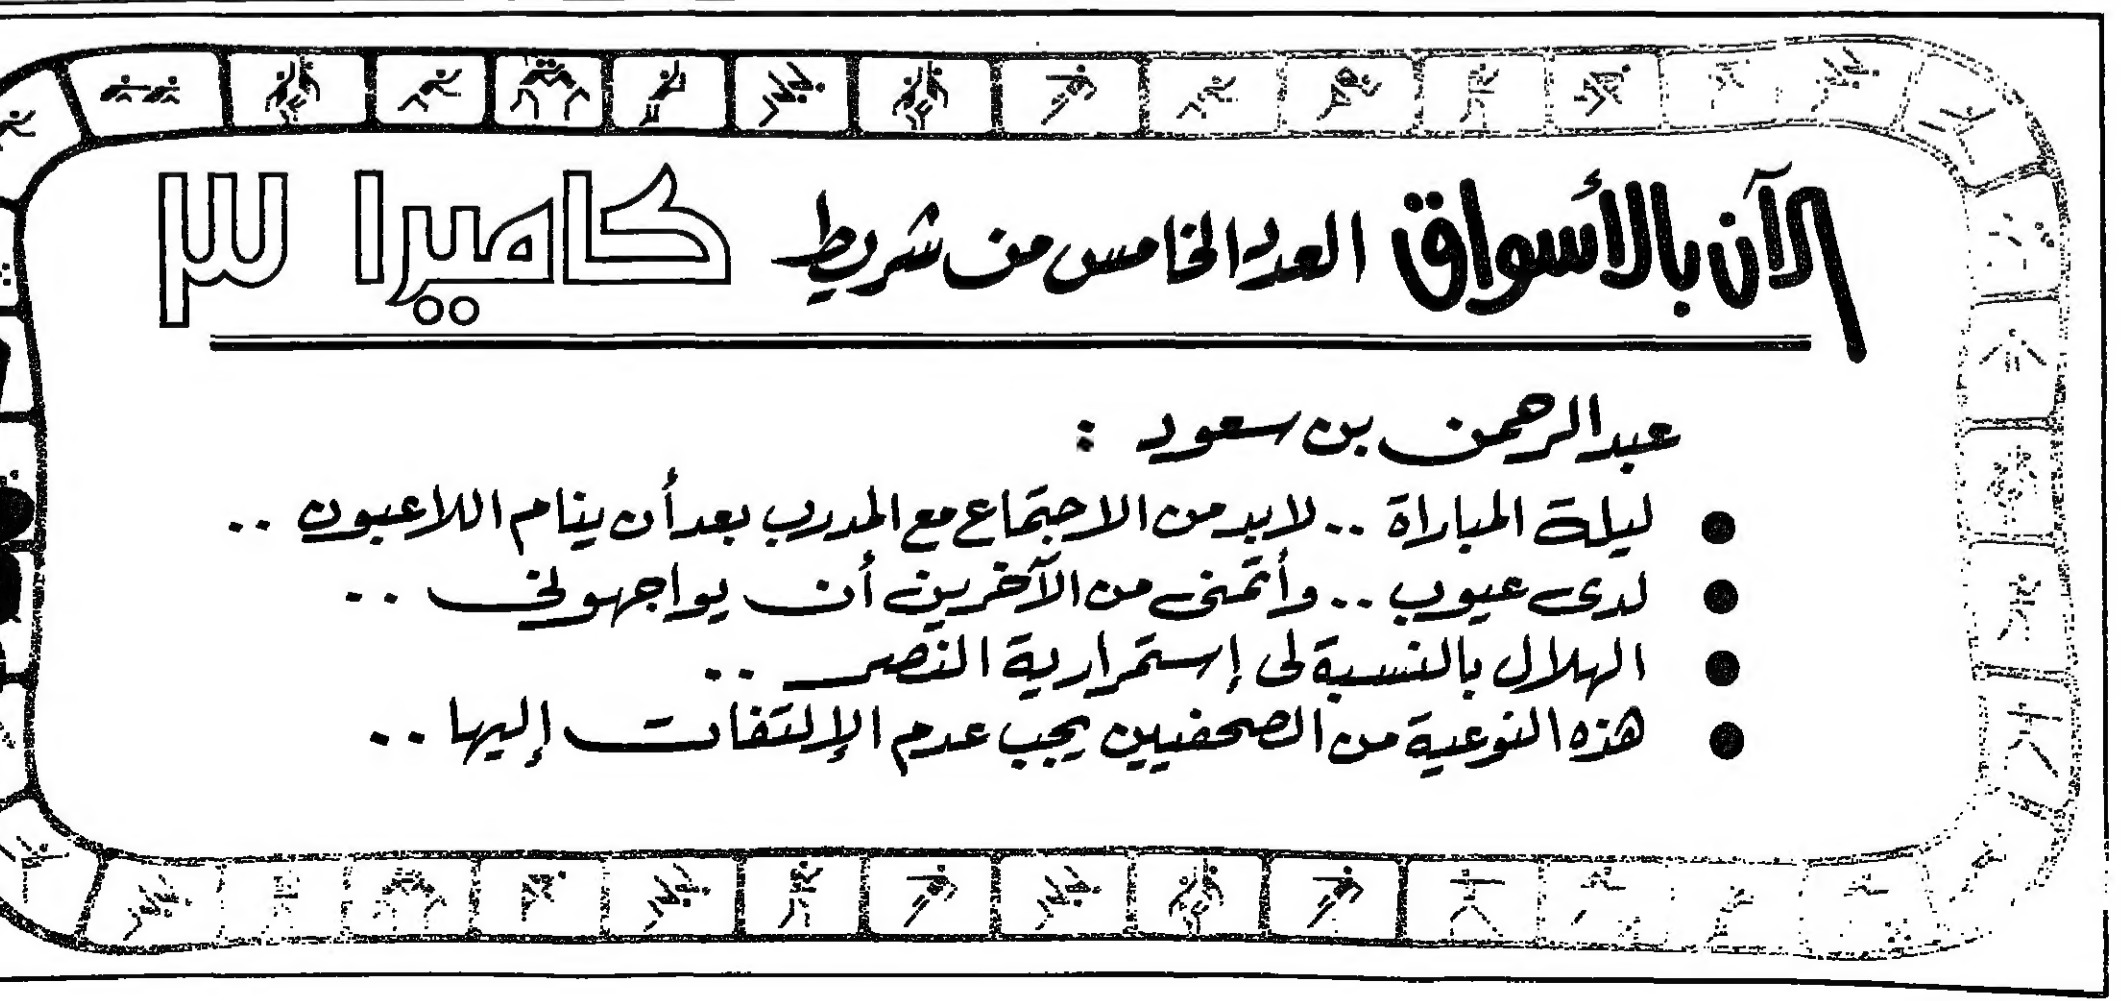 الآن بالأسواق العدد الخامس من شريط كاميرا ٣
عبدالرحمن بن سعود :
● ليلة المباراة .. لابد من الاجتماع مع المدرب بعد أن ينام اللاعبون ..
● لدى عيوب .. وأتمنى من الآخرين أن يواجهوني ..
● الهلال بالنسبة لى إستمرارية النصر ..
● هذه النوعية من الصحفيين يجب عدم الإلتفات إليها ..